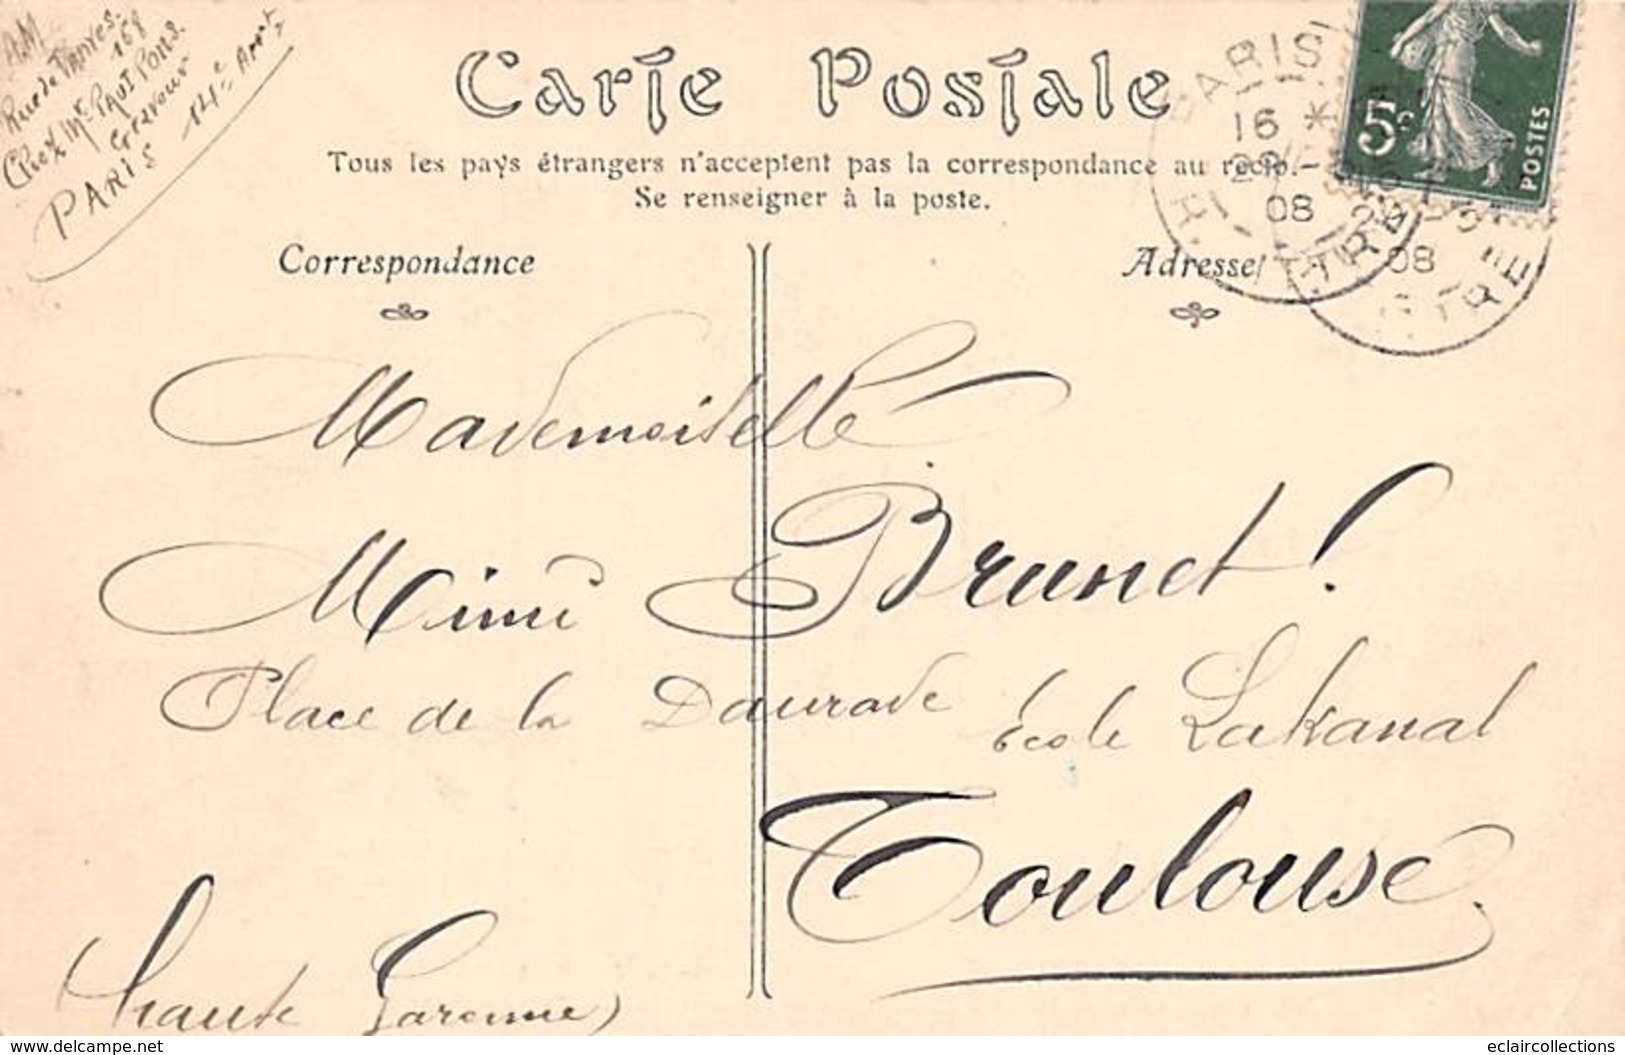 A.M
Rue de Vanves. 168
Chez Mr PAUL Pons.
Graveur
PARIS 14e Arrt
Carte Postale
Tous les pays étrangers n'acceptent pas la correspondance au recto.
Se renseigner à la poste.
Correspondance
Adresse
PARIS
16
08
08
5c
POSTES
Mademoiselle
Mimi Brunet!
Place de la Daurade École Lakanal
Toulouse.
Haute Garonne)
www.delcampe.net
eclaircollections